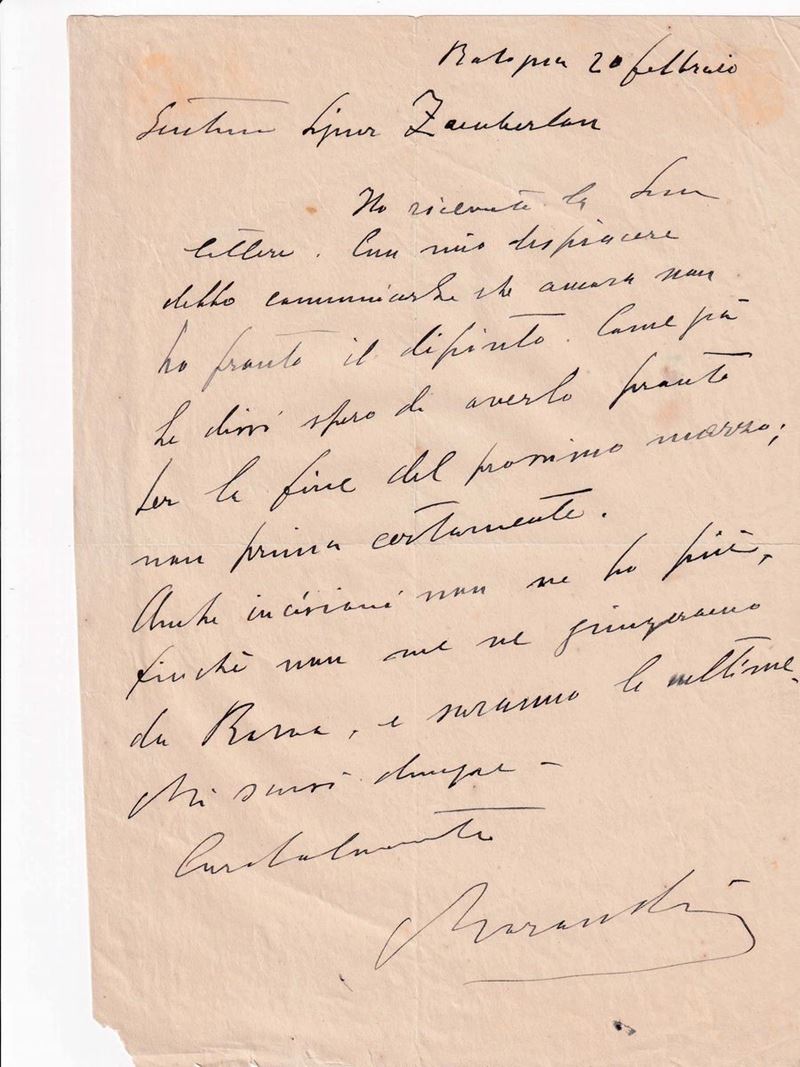 Bologna 20 febbraio
Gentmo Signor Zamberlan
Ho ricevuto la Sua
lettera. Con mio dispiacere
debbo comunicarLe che ancora non
ho pronto il dipinto. Come già
Le dissi spero di averlo pronto
per la fine del prossimo marzo;
non prima certamente.
Anche incisioni non ne ho più,
finchè non me ne giungeranno
da Roma, e saranno le ultime.
Mi scusi dunque –
Cordialmente
Morandi